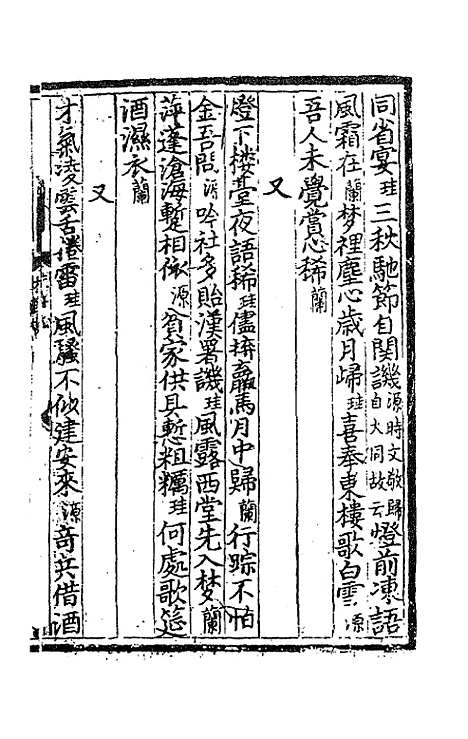 同省宴珪三秋馳節自関譏源時文敬歸自大同故云燈前凍語
風霜在蘭梦裡塵心歳月歸珪喜奉東樓歌白雪源
吾人未覺賞心稀蘭
又
燈下楼臺夜語稀珪儘拚羸馬月中歸蘭行踪不怕
金吾問源吟社多貽漢署譏珪風露西堂先入梦蘭
萍蓬滄海蹔相依源貧家供具慙粗糲珪何處歌筵
酒濕衣蘭
又
才氣凌雲舌捲雷珪風騷不似建安來源奇兵借酒